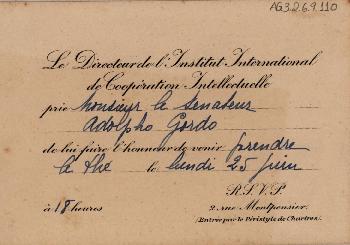 AG3.2.6.9.110
Le Directeur de l'Institut International
de Coopération Intellectuelle
prie Monsieur le Senateur
Adolpho Gordo
de lui faire l'honneur de venir prendre
le thé le lundi 25 juin
à 18 heures
R.S.V.P.
2 rue Montpensier
(Entrée par le Péristyle de Chartres)